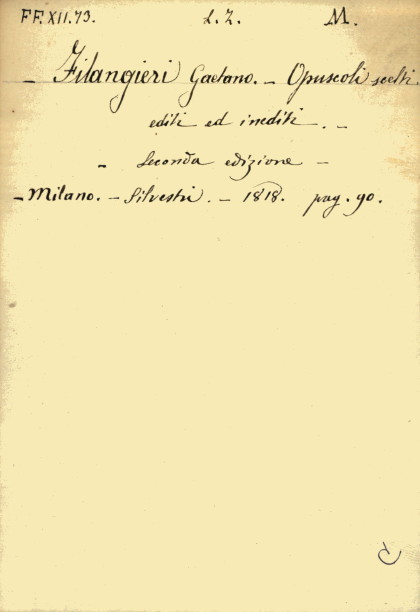 FF.XII.73. L.Z. M.
– Filangieri Gaetano. – Opuscoli scelti.
editi ed inediti. –
– Seconda edizione –
– Milano. – Silvestri. – 1818. pag. 90.